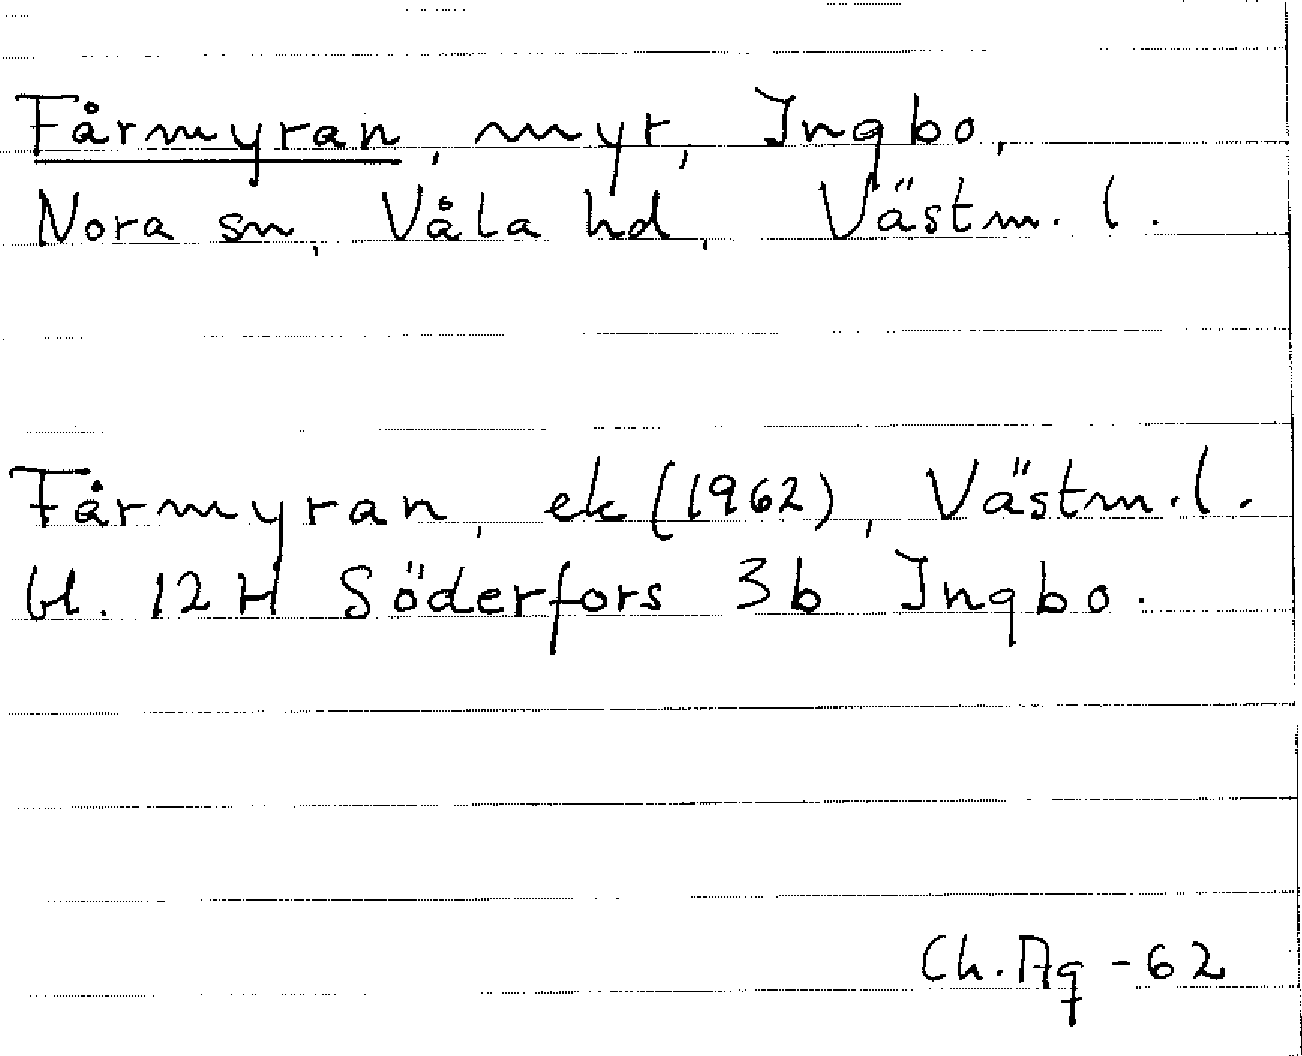 Fårmyran, myr, Ingbo,
Nora sn, Våla hd, Västm. l.
Fårmyran, ek (1962), Västm. l.
bl. 12 H Söderfors 3b Ingbo.
Ch. Ag -62